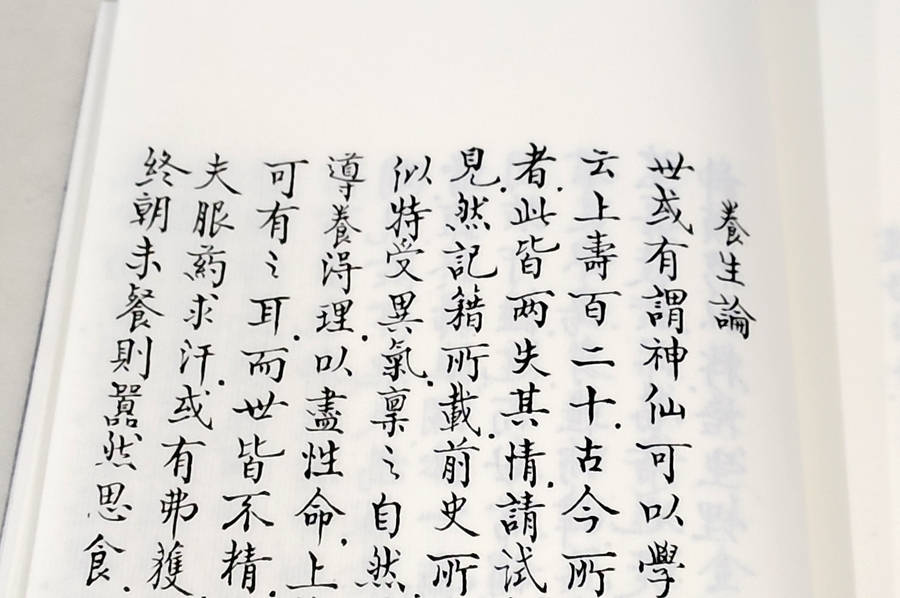 養生論
世或有謂神仙可以學
云上壽百二十古今所
者.此皆两失其情.請試
見.然記籍所載.前史所
似特受異氣.禀之自然
導養得理以盡性命.上
可有之耳.而世皆不精
夫服药求汗.或有弗獲
終朝未餐則嚣然思食.